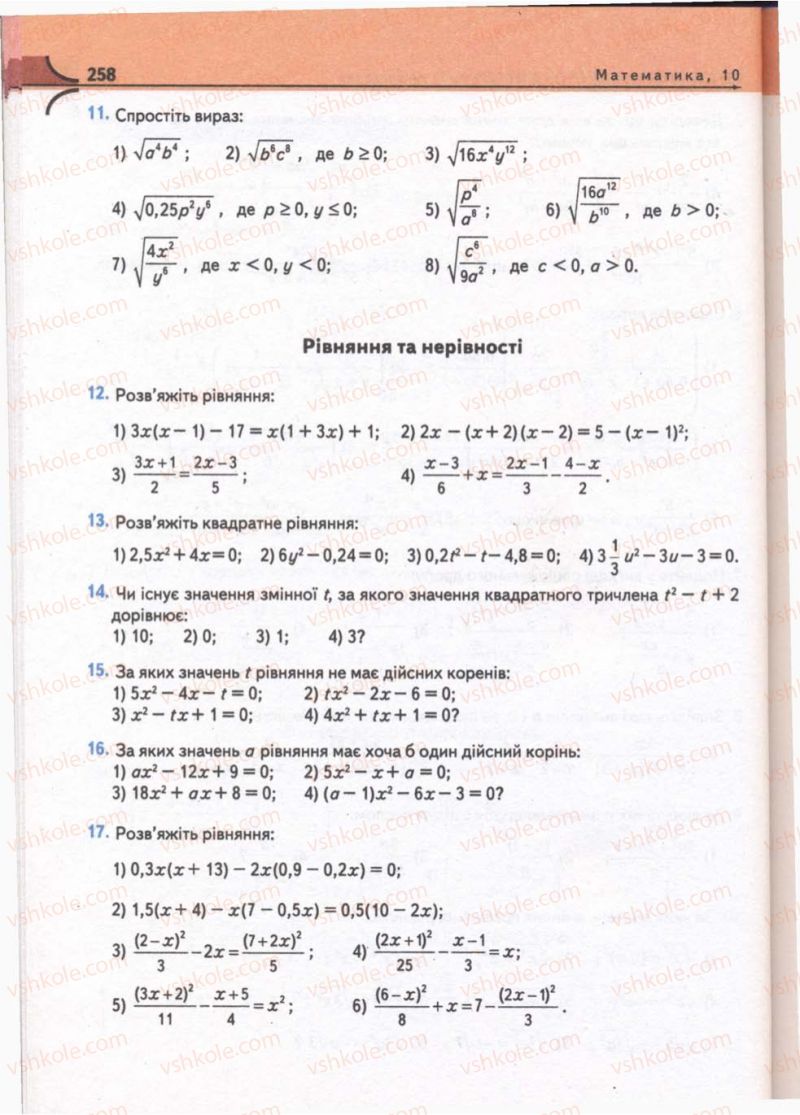 258
Математика, 10
11. Спростіть вираз:
1) √(a⁴b⁴) ; 2) √(b⁶c⁸) , де b ≥ 0; 3) √(16x⁴y¹²) ;
4) √(0,25p²y⁶) , де p ≥ 0, y ≤ 0; 5) √(p⁴/a⁸) ; 6) √(16a¹²/b¹⁰) , де b > 0;
7) √(4x²/y⁶) , де x < 0, y < 0; 8) √(c⁶/9a²) , де c < 0, a > 0.
Рівняння та нерівності
12. Розв'яжіть рівняння:
1) 3x(x − 1) − 17 = x(1 + 3x) + 1; 2) 2x − (x + 2)(x − 2) = 5 − (x − 1)²;
3) (3x+1)/2 = (2x−3)/5 ; 4) (x−3)/6 + x = (2x−1)/3 − (4−x)/2 .
13. Розв'яжіть квадратне рівняння:
1) 2,5x² + 4x = 0; 2) 6y² − 0,24 = 0; 3) 0,2t² − t − 4,8 = 0; 4) 3 1/3 u² − 3u − 3 = 0.
14. Чи існує значення змінної t, за якого значення квадратного тричлена t² − t + 2
дорівнює:
1) 10; 2) 0; 3) 1; 4) 3?
15. За яких значень t рівняння не має дійсних коренів:
1) 5x² − 4x − t = 0; 2) tx² − 2x − 6 = 0;
3) x² − tx + 1 = 0; 4) 4x² + tx + 1 = 0?
16. За яких значень a рівняння має хоча б один дійсний корінь:
1) ax² − 12x + 9 = 0; 2) 5x² − x + a = 0;
3) 18x² + ax + 8 = 0; 4) (a − 1)x² − 6x − 3 = 0?
17. Розв'яжіть рівняння:
1) 0,3x(x + 13) − 2x(0,9 − 0,2x) = 0;
2) 1,5(x + 4) − x(7 − 0,5x) = 0,5(10 − 2x);
3) (2−x)²/3 − 2x = (7+2x)²/5 ; 4) (2x+1)²/25 − (x−1)/3 = x;
5) (3x+2)²/11 − (x+5)/4 = x² ; 6) (6−x)²/8 + x = 7 − (2x−1)²/3 .
vshkole.com